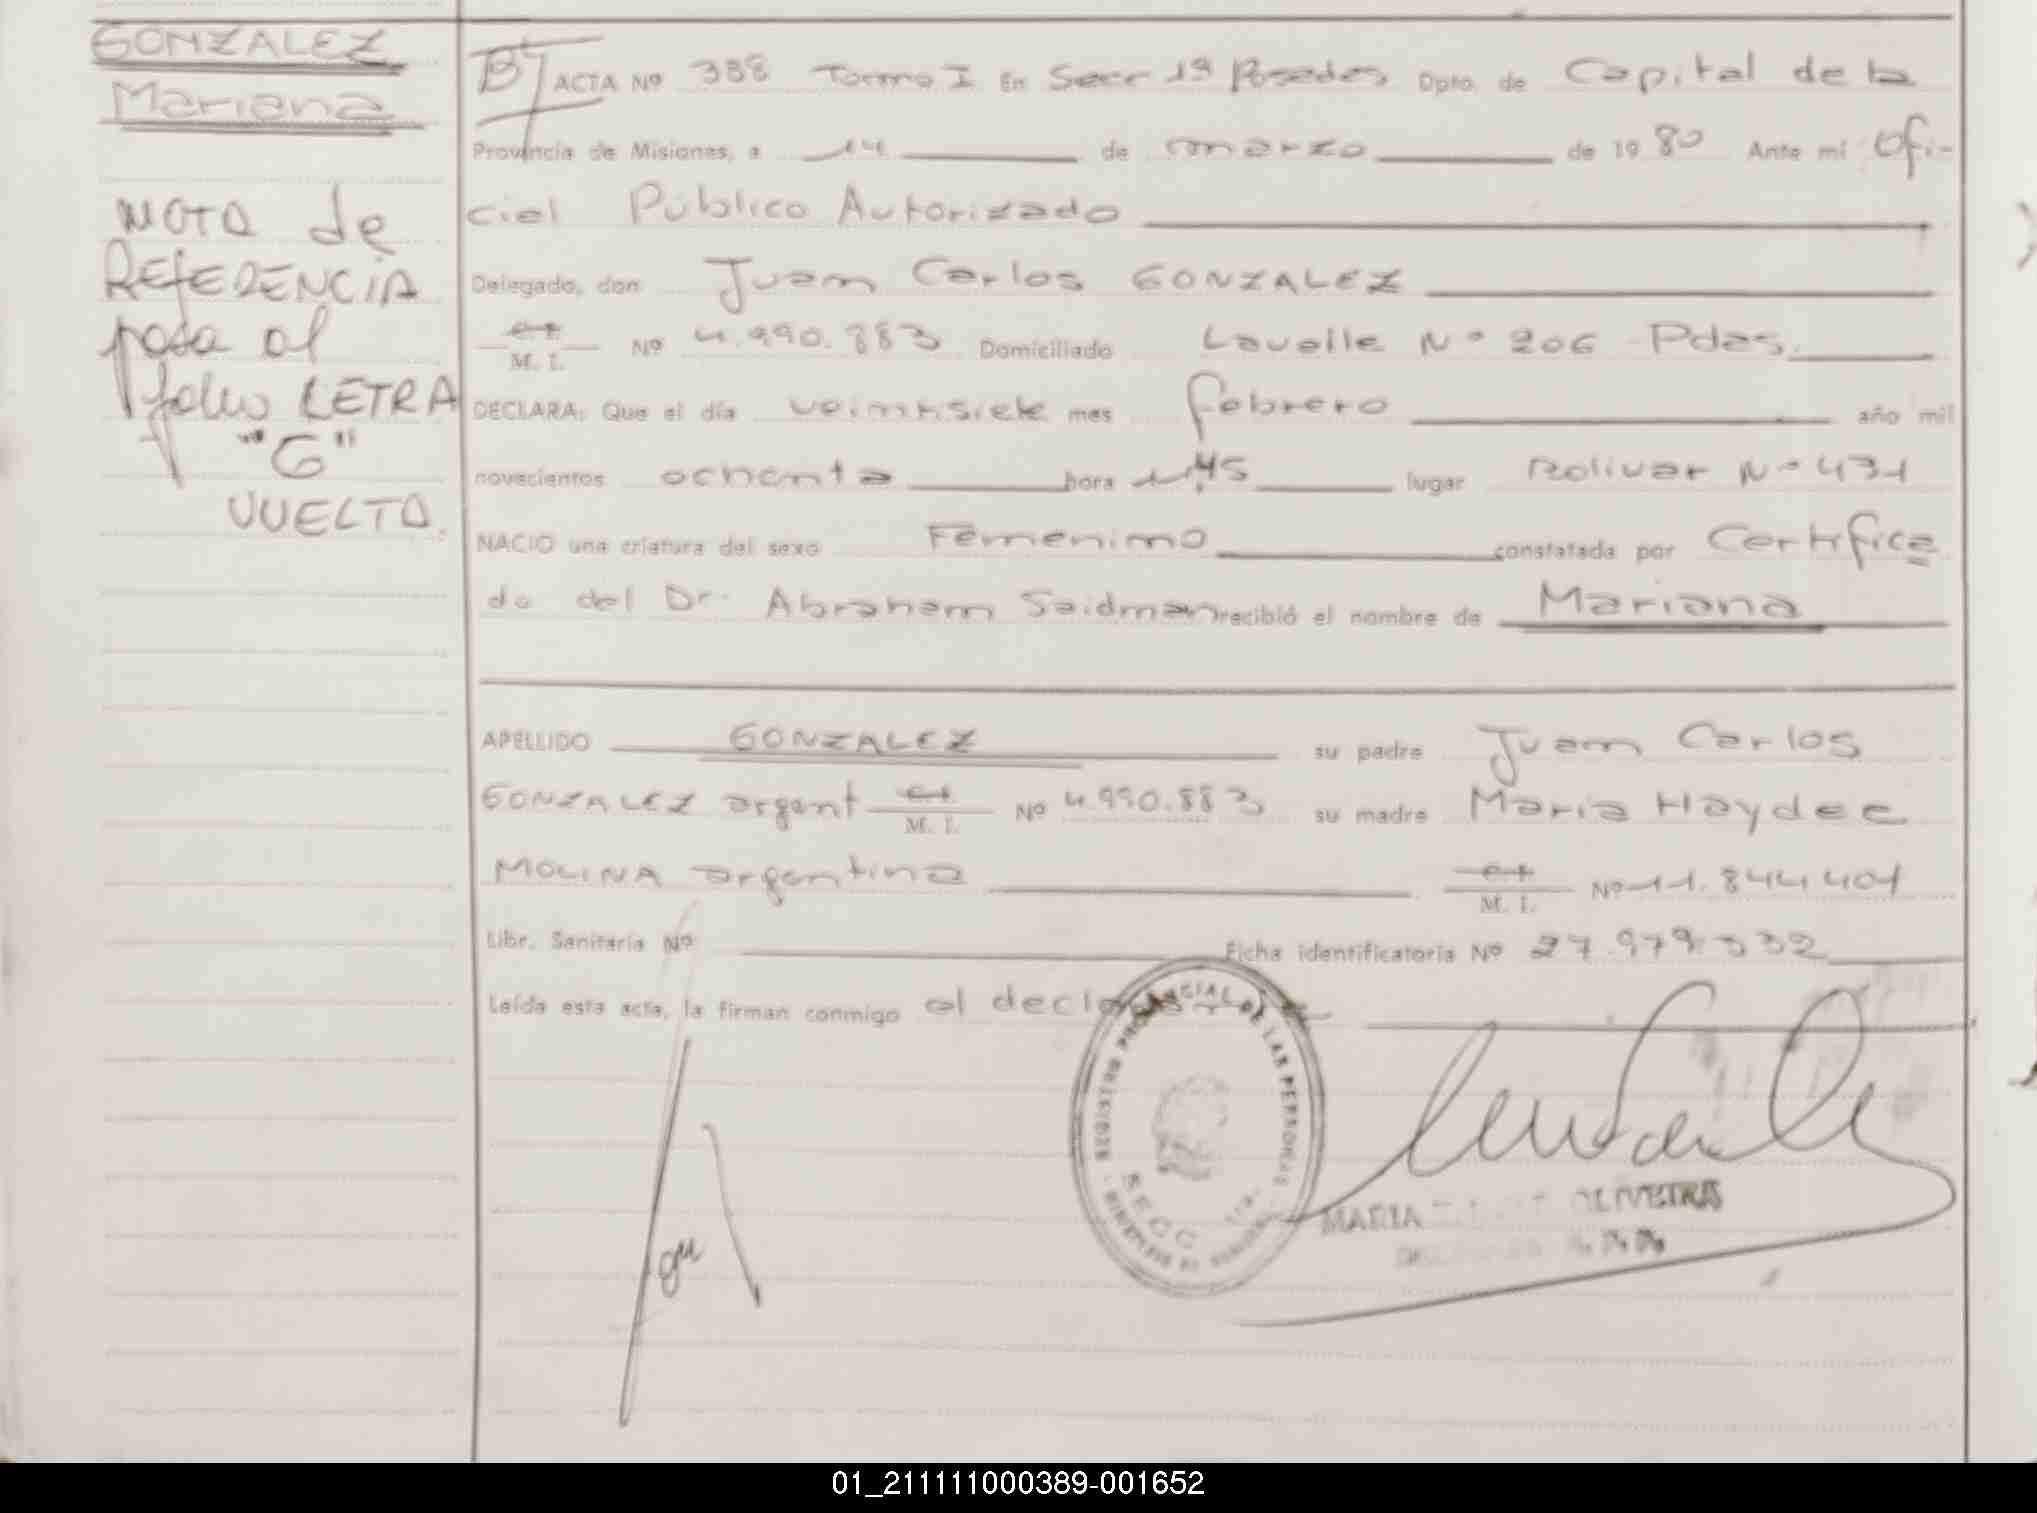 GONZALEZ
Mariana
NOTA de
REFERENCIA
pasa al
folio LETRA
"G"
VUELTA.
ACTA Nº 388 Tomo I En Secc 1ª Posadas Dpto. de Capital de la
Provincia de Misiones, a 14 de marzo de 1980 Ante mi Ofi-
cial Público Autorizado
Delegado, don Juan Carlos GONZALEZ
M. I. Nº 4.990.883 Domiciliado Lavalle Nº 206 Pdas.
DECLARA: Que el día veintisiete mes febrero año mil
novecientos ochenta hora lugar Bolivar Nº 431
NACIO una criatura del sexo Femenino constatada por Certifica
do del Dr. Abraham Saidman recibió el nombre de Mariana
APELLIDO GONZALEZ su padre Juan Carlos
GONZALEZ argent M. I. Nº 4.990.883 su madre Maria Haydee
MOLINA argentina M. I. Nº 11.844.401
Libr. Sanitaria Nº Ficha identificatoria Nº 27.979.332
Leída esta acta, la firman conmigo el
PROVINCIAL DE LAS PERSONAS
SECC
MARIA OLIVEIRA
01_211111000389-001652